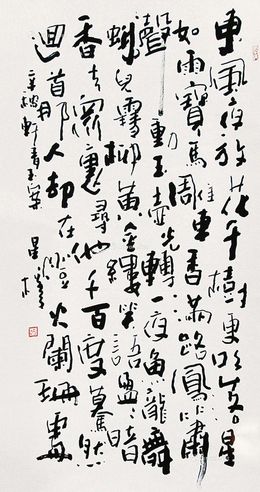 東風夜放花千樹更吹落星
如雨寶馬雕車香滿路鳳簫
聲動玉壺光轉一夜魚龍舞
蛾兒雪柳黃金縷笑語盈盈暗
香去眾裏尋他千百度驀然
迴首那人却在燈火闌珊處
辛稼軒青玉案